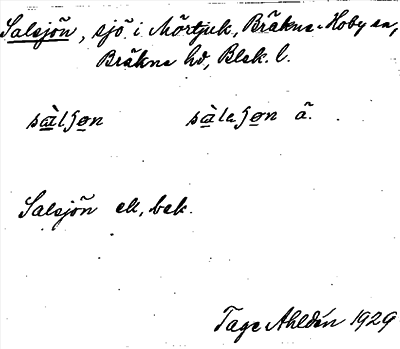 Salsjön, sjö i Mörtjuk, Bräkne-Hoby sn,
Bräkne hd, Blek. l.
sàlʃon sàlaʃon ä.
Salsjön ek, bek.
Tage Ahldén 1929